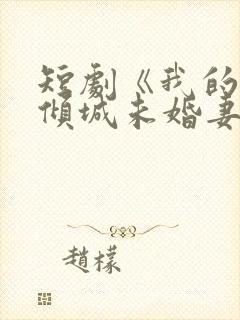 短劇《我的
傾城未婚妻
趙檬